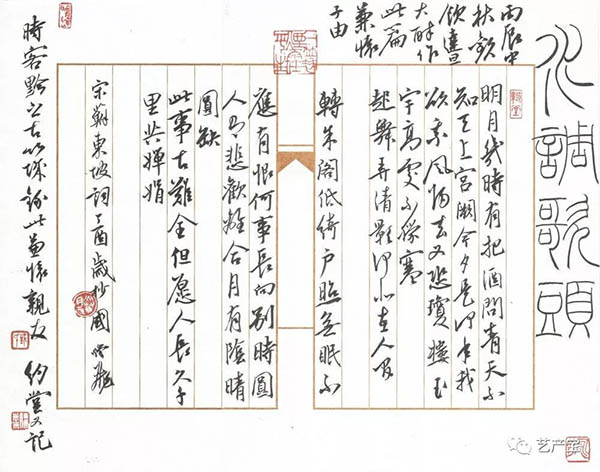 水調歌頭
丙辰中
秋歡
飲達旦
大醉作
此篇
兼懷
子由
明月幾時有把酒問青天不
知天上宮闕今夕是何年我
欲乘風歸去又恐瓊樓玉
宇高處不勝寒
起舞弄清影何似在人間
轉朱閣低綺戶照無眠不
應有恨何事長向別時圓
人有悲歡離合月有陰晴
圓缺
此事古難全但愿人長久千
里共嬋娟
宋蘇東坡詞丁酉歲杪國
時客黔之古筑城錄此兼懷親友 約堂又記
艺产